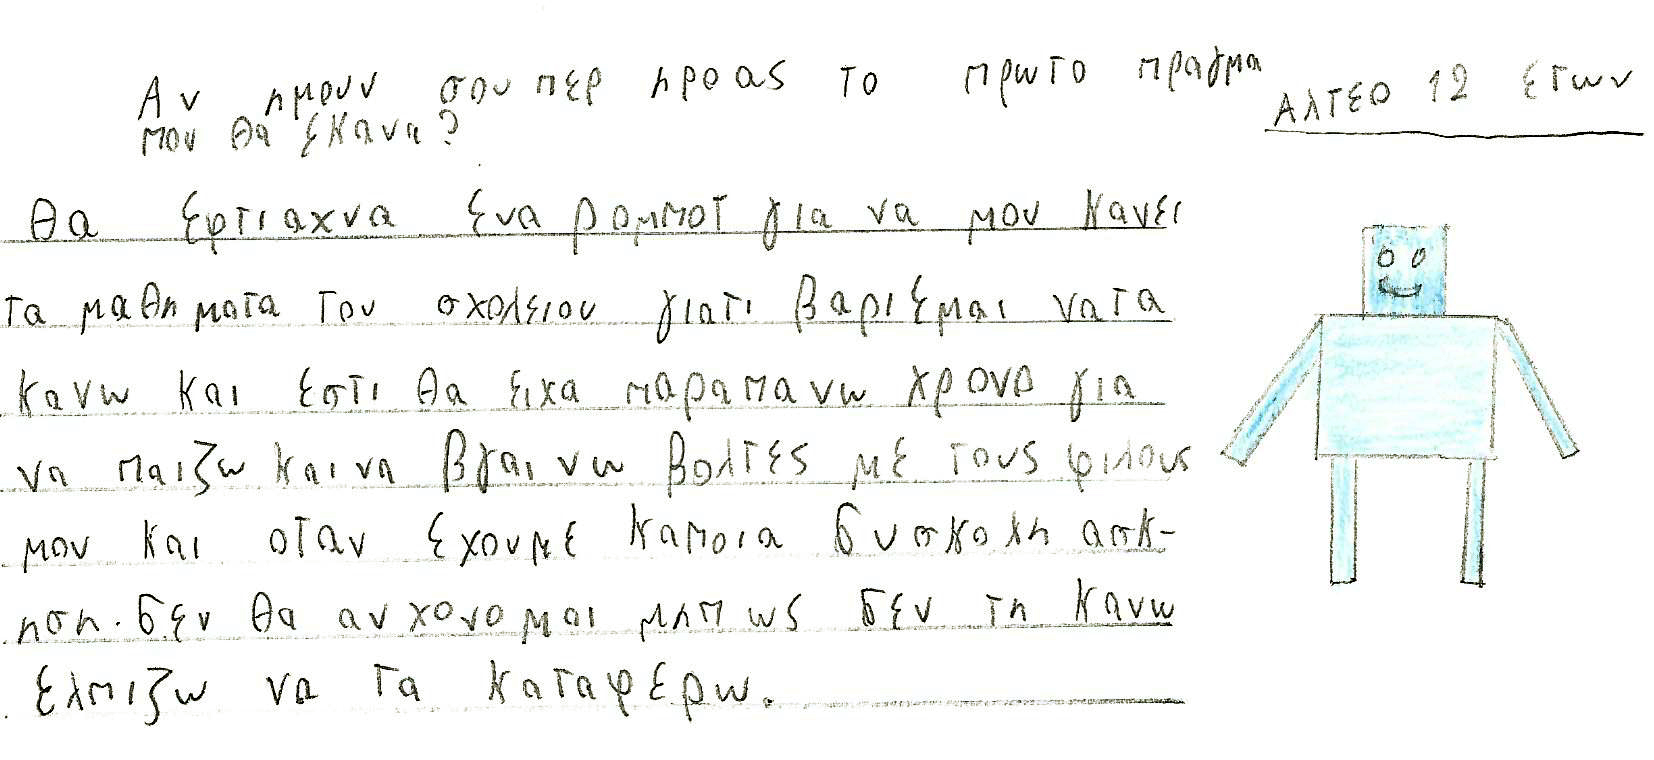 Αν ημουν σουπερ ηροας το πρωτο πραγμα
που θα εκανα?
Αλτεο 12 ετων
Θα εφτιαχνα ενα ρομποτ για να μου κανει
τα μαθηματα του σχολειου γιατι βαριεμαι νατα
κανω και εστι θα ειχα παραπανω χρονο για
να παιζω και να βγαινω βολτες με τους φιλους
μου και οταν εχουμε καποια δυσκολη ασκ-
ηση. δεν θα ανχονομαι μηπως δεν τη κανω
ελπιζω να τα καταφερω.